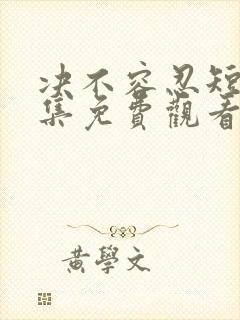 决不容忍短
集免費觀看
黃學文